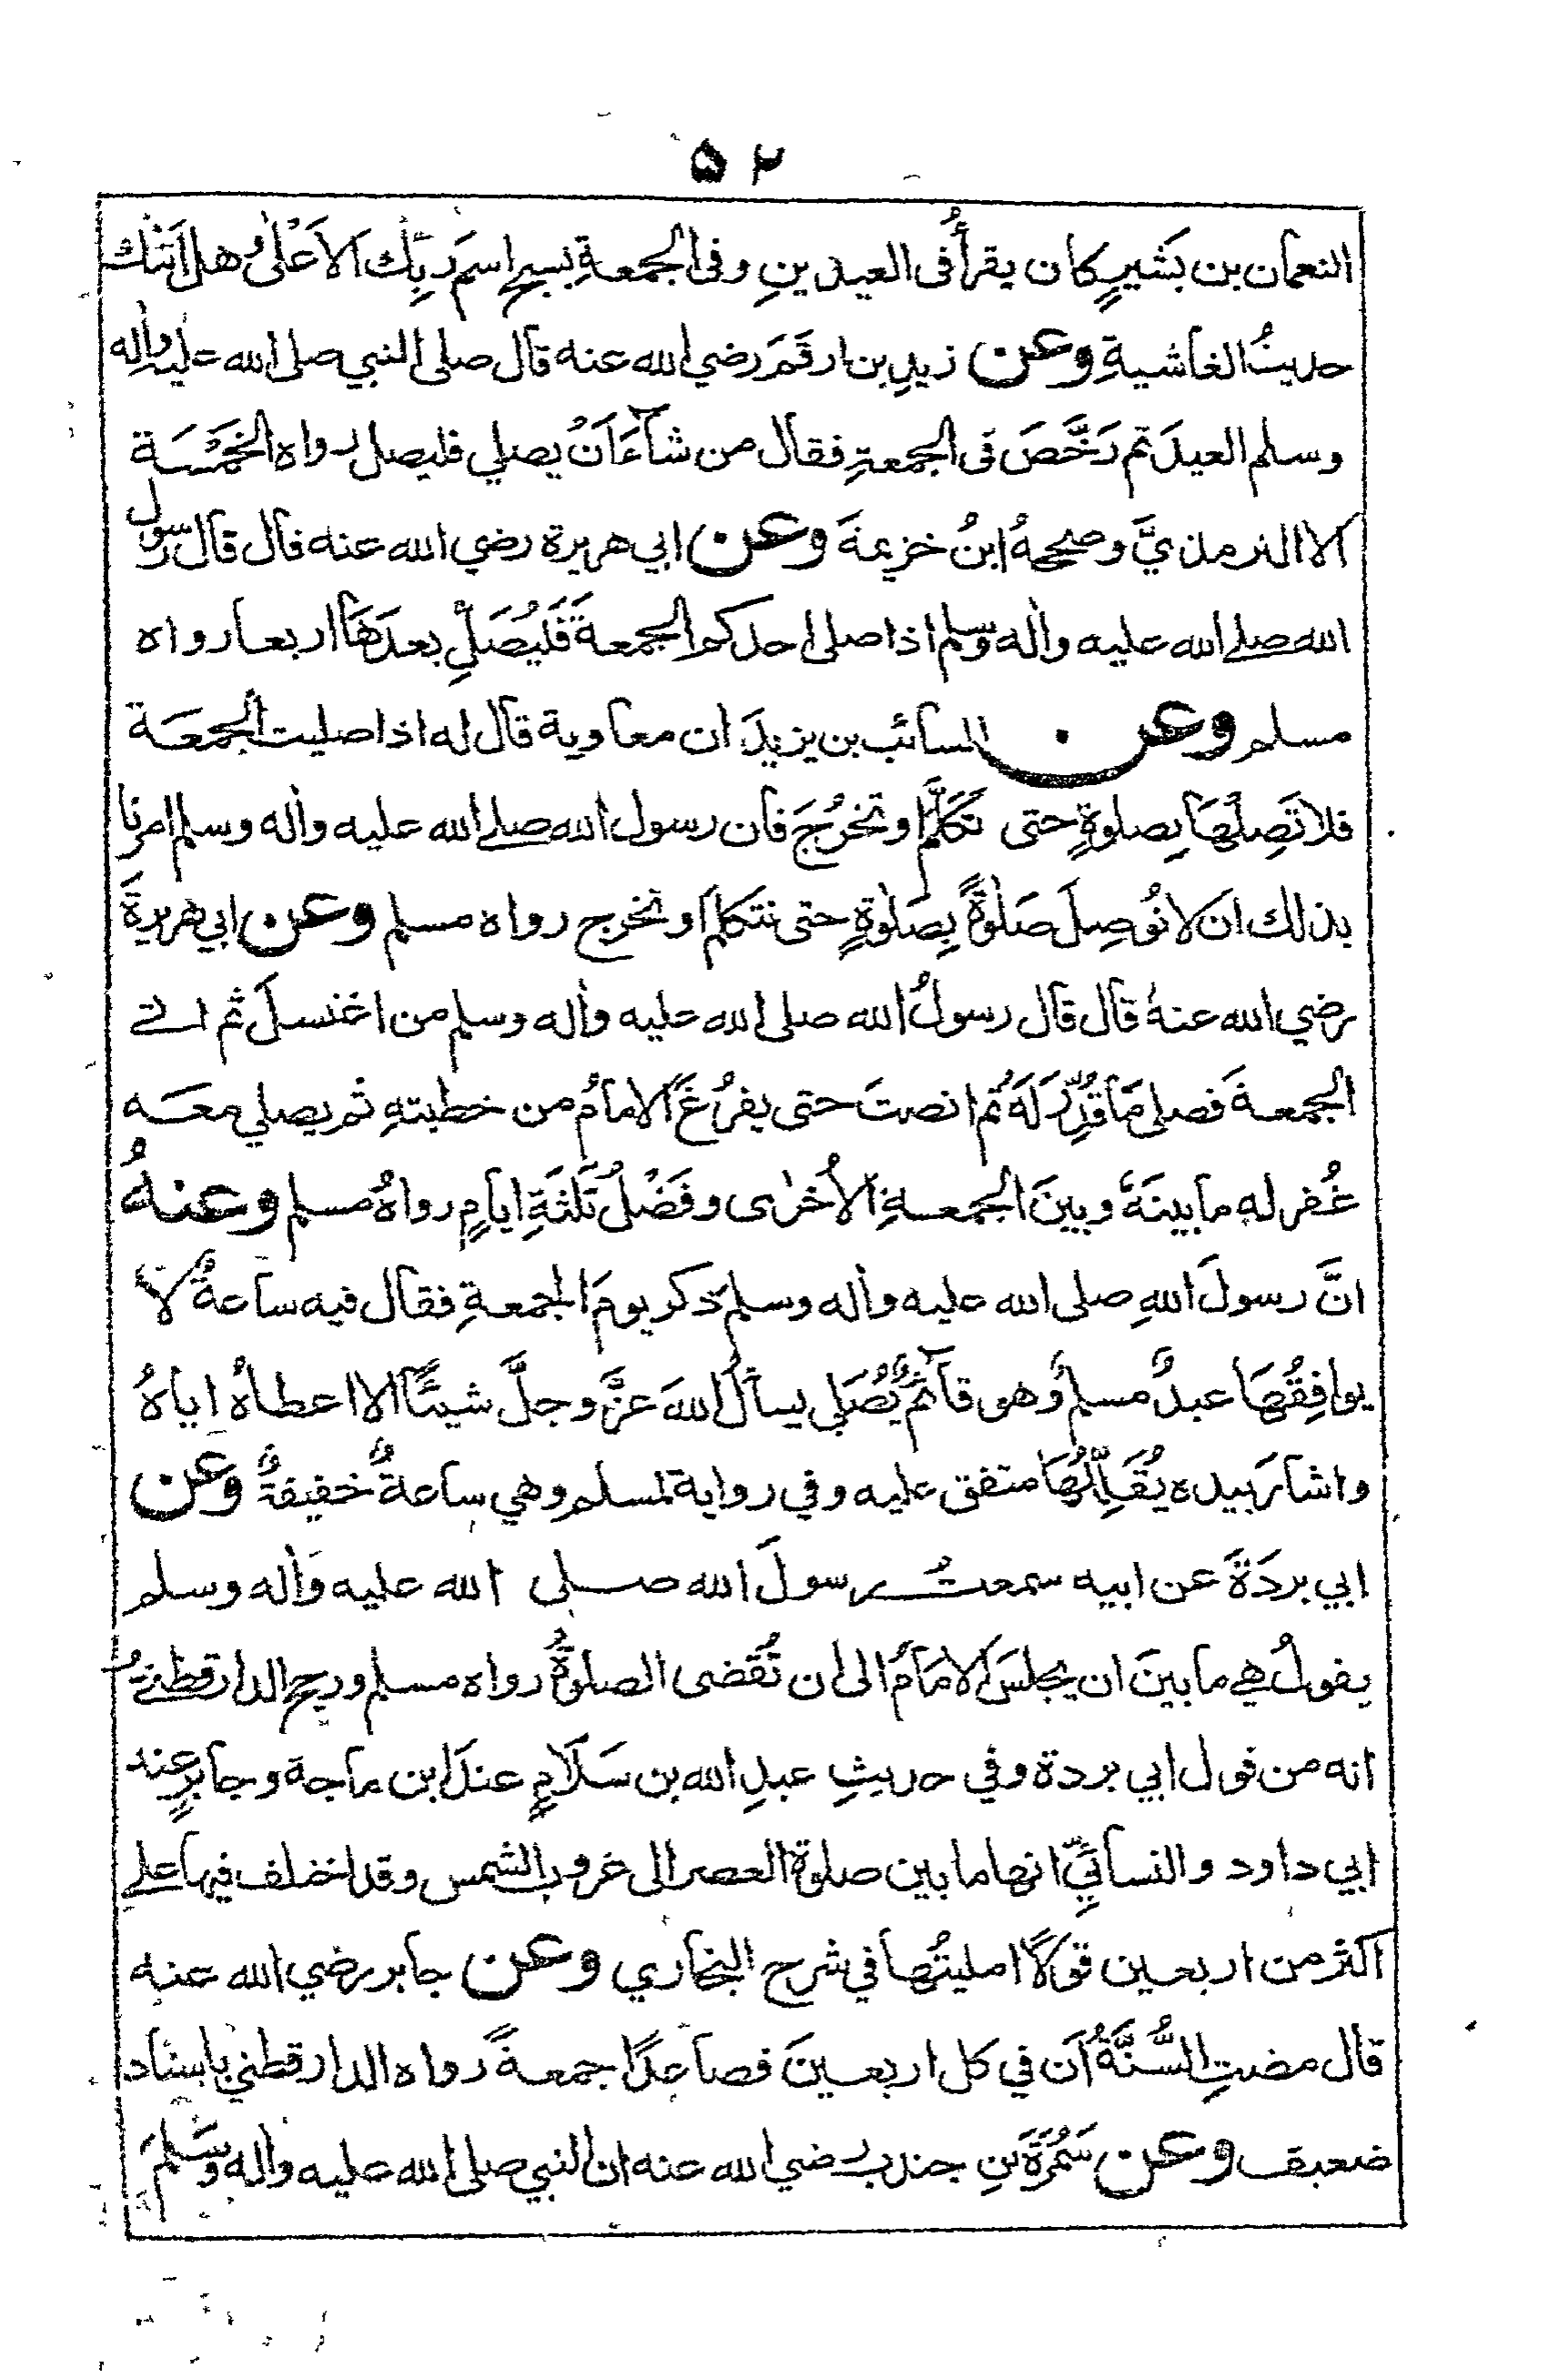 ٥٢
النعمان بن بَشيرٍ كان يقرأُ فى العيدينِ وفى الجمعةِ بسبحِ اسمَ ربِّك الاَعْلىٰ وهل اَتٰىك
حديثُ الغاشيةِ وعن زيدِ بن ارقَمَ رضي الله عنه قال صلى النبي صلى الله عليه واٰله
وسلم العيدَ ثم رَخَّصَ فى الجمعةِ فقال من شآءَ اَنْ يصلي فليصل رواه الخَمْسَة
الا الترمذيَّ وصححهُ ابنُ خزيمةَ وعن ابي هريرة رضي الله عنه قال قال رسول
الله صلے الله عليه واٰله وسلم اذا صلى احدكم الجمعةَ فَليُصَلِّ بعدَهَا اربعا رواه
مسلم وعن السائب بن يزيدَ ان معاوية قال له اذا صليت الجمعَة
فلا تَصِلْهَا بِصلوةٍ حتى تَكَلَّمَ او تخرُجَ فان رسول الله صلے الله عليه واٰله وسلم امرنا
بذلك ان لا نُوصِلَ صَلوةً بِصَلوةٍ حتى نتكلمَ او نخرج رواه مسلم وعن ابي هريرةَ
رضي الله عنهُ قال قال رسولُ الله صلى الله عليه واٰله وسلم من اغتسلَ ثم اتے
الجمعةَ فصلى مَا قُدِّرَ لَهُ ثم انصتَ حتى يفرُغَ الامامُ من خطبتهِ ثم يصلي معَه
غُفر له ما بينَهُ وبينَ الجمعةِ الاُخرٰى وفَضْلُ ثَلٰثَةِ ايامٍ رواهُ مسلم وعنهُ
انَّ رسولَ اللهِ صلى الله عليه واٰله وسلم ذكر يومَ الجمعةِ فقال فيه ساعةٌ لا
يوافِقُهَا عبدٌ مسلمٌ وهو قآئمٌ يُصَلِي يسألُ اللهَ عزَّ وجلَّ شيئًا الا اعطاهُ اياهُ
واشارَ بيده يُقَلِّلُهَا متفق عليه وفي رواية لمسلم وهي ساعةٌ خفيفةٌ وعن
ابي بردَةَ عن ابيه سمعتُ رسولَ الله صلى الله عليه وَاٰله وسلم
يقولُ هي ما بينَ ان يجلسَ الامَامُ الى ان تُقضى الصلوةُ رواه مسلم ورجح الدارقطنيُّ
انه من قول ابي بردة وفي حديثِ عبدِ الله بن سَلَامٍ عندَ ابن ماجة وجابرٍ عند
ابي داود والنسائيِّ انها ما بين صلوة العصر الى غروب الشمس وقد اختلف فيها علے
اكثر من اربعين قولًا امليتُها في شرح البخاري وعن جابر رضي الله عنه
قال مضتِ السُّنَّةُ اَن في كل اربعينَ فصاعدًا جمعةً رواه الدارقطني باسناد
ضعيف وعن سَمُرَةَ بنِ جندب رضي الله عنه ان النبي صلى الله عليه واٰله وسَلمَ